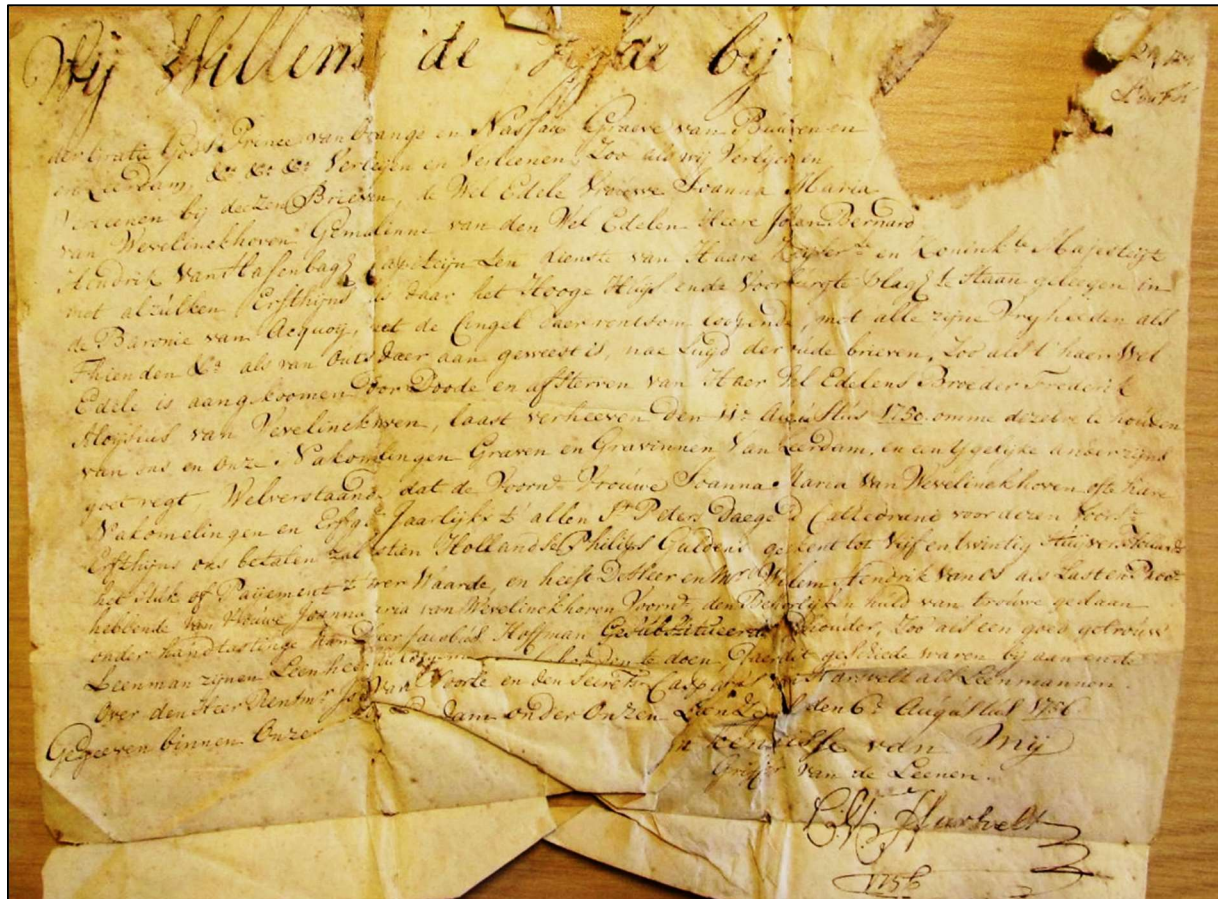 Wij Willem de Vyfde bij
der Gratie Gods Prince van Orange en Nassau Graeve van Buuren en
en Leerdam, &c. &c. &c. Verleijen en Verleenen, Zoo als wij Verlyden en
Verleenen bij deezen Brieven, de Wel Edele Vrouwe Joanna Maria
van Wevelinckhoven Gemalinne van den Wel Edelen Heere Johan Bernard
Hindrik Van Capiteijn ten dienste van Haare en Konink. Majesteijt
met alzulken Erfthijns als daar het Hooge Huys ende Voorburgte plag te Staan geleegen in
de Baronie van Acquoy, met de Cingel daer rontsom leggende, met alle zijne Vryheeden als
Thienden &c. als van Outs daer aan geweest is, nae Luyd der oude brieven, Zoo als 't haer Wel
Edele is aangekoomen door Doode en afsterven van Haer Wel Edelens Broeder Frederik
Aloysius van Wevelinckhoven, laast verheeven den 11e Augustus 1750. omme dezelve te houden
van ons en Onze Nakomlingen Graven en Gravinnen Van Leerdam, en een Ygelijke anderzijns
goet regt, Welverstaande dat de Voorn. Vrouwe Joanna Maria van Wevelinckhoven ofte hare
Nakomelingen en Erfg. Jaarlijks t' allen St. Peters Daege voor dezen Voors.
Erfthijns ons betalen zal tien Hollandse Philips Guldens gerekent tot Vijf en twintig Stuijvers
het stuk of Paijement t' zver Waarde, en heeft De Heer en Mr. Willem Hendrik van Os als Last en Proc.
hebbende van Vrouwe Joanna Maria van Wevelinckhoven Voorn. den Behorlyken huld van trouwe gedaan
onder handtastinge van Heer Jacobus Hoffman Gesubstitueerde Stadhouder, Zoo als een goed getrouw
Leenman zijnen Leenheer te doen, Daer dit geschiede waren bij aan ende
Over den Heer Rentmr van Voorle en den Secretr. Harsvelt als Leenmannen.
Gegeeven binnen Onze dam onder Onzen Leen Zegel den 6e Augustus 1756
In kennisse van Mij
Griffir van de Leenen.
C.V. Harsvelt
1756